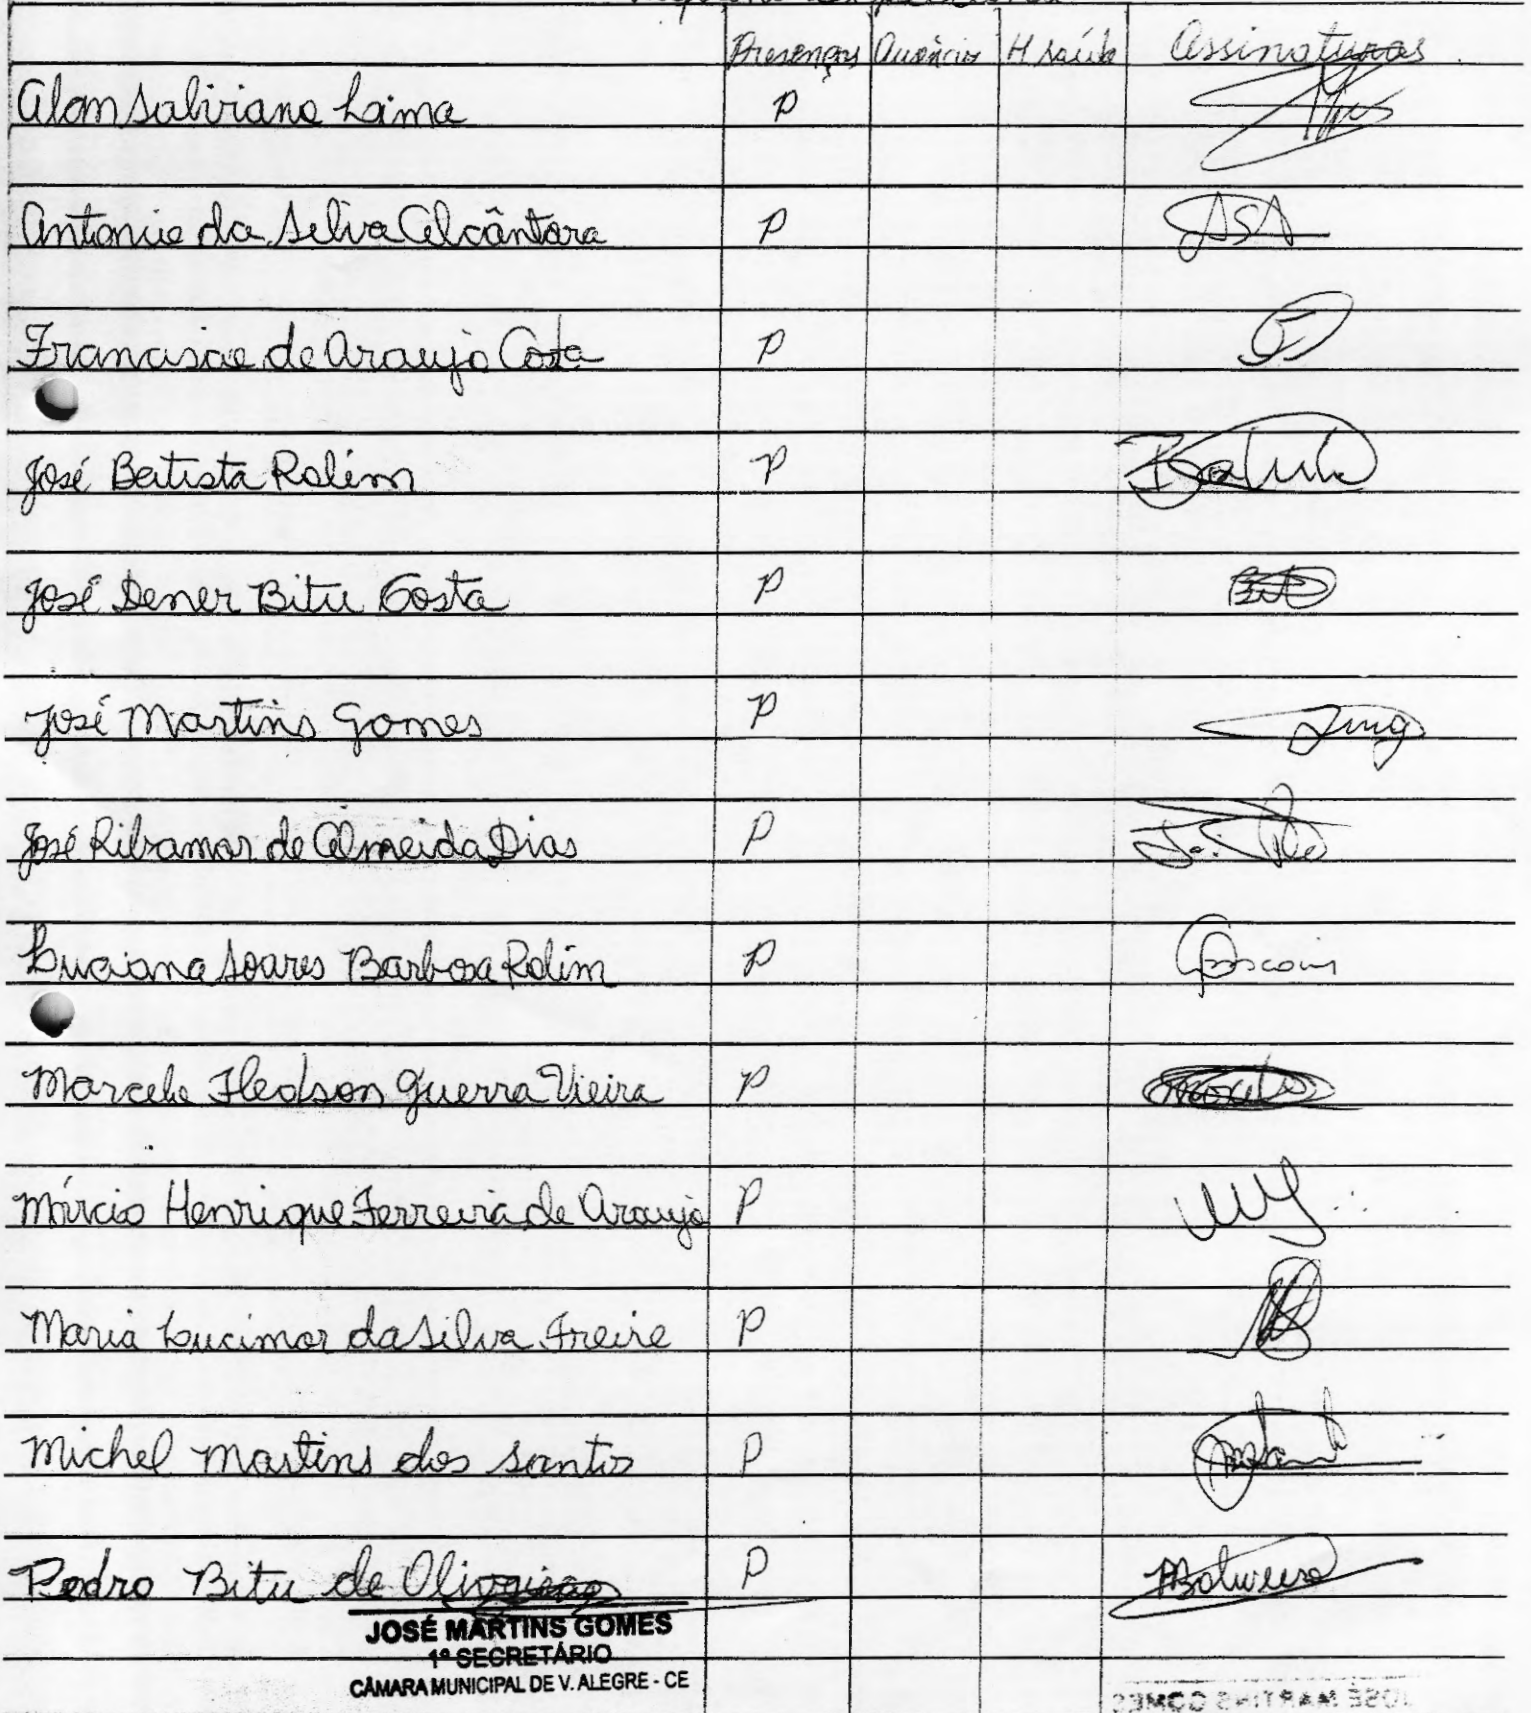 Presenças Ausências H Saúde Assinaturas
Alan Salviano Lima P
Antonio da Silva Alcântara P ASA
Francisco de Araujo Costa P
José Batista Rolim P
José Dener Bitu Costa P Bitu
José Martins Gomes P Jmg
José Ribamar de Almeida Dias P
Luciana Soares Barbosa Rolim P
Marcelo Fledson Guerra Vieira P
Márcio Henrique Ferreira de Araujo P
Maria Lucimar da Silva Freire P
Michel Martins dos Santos P
Pedro Bitu de Oliveira P
JOSÉ MARTINS GOMES
1º SECRETÁRIO
CÂMARA MUNICIPAL DE V. ALEGRE - CE
JOSÉ MARTINS GOMES